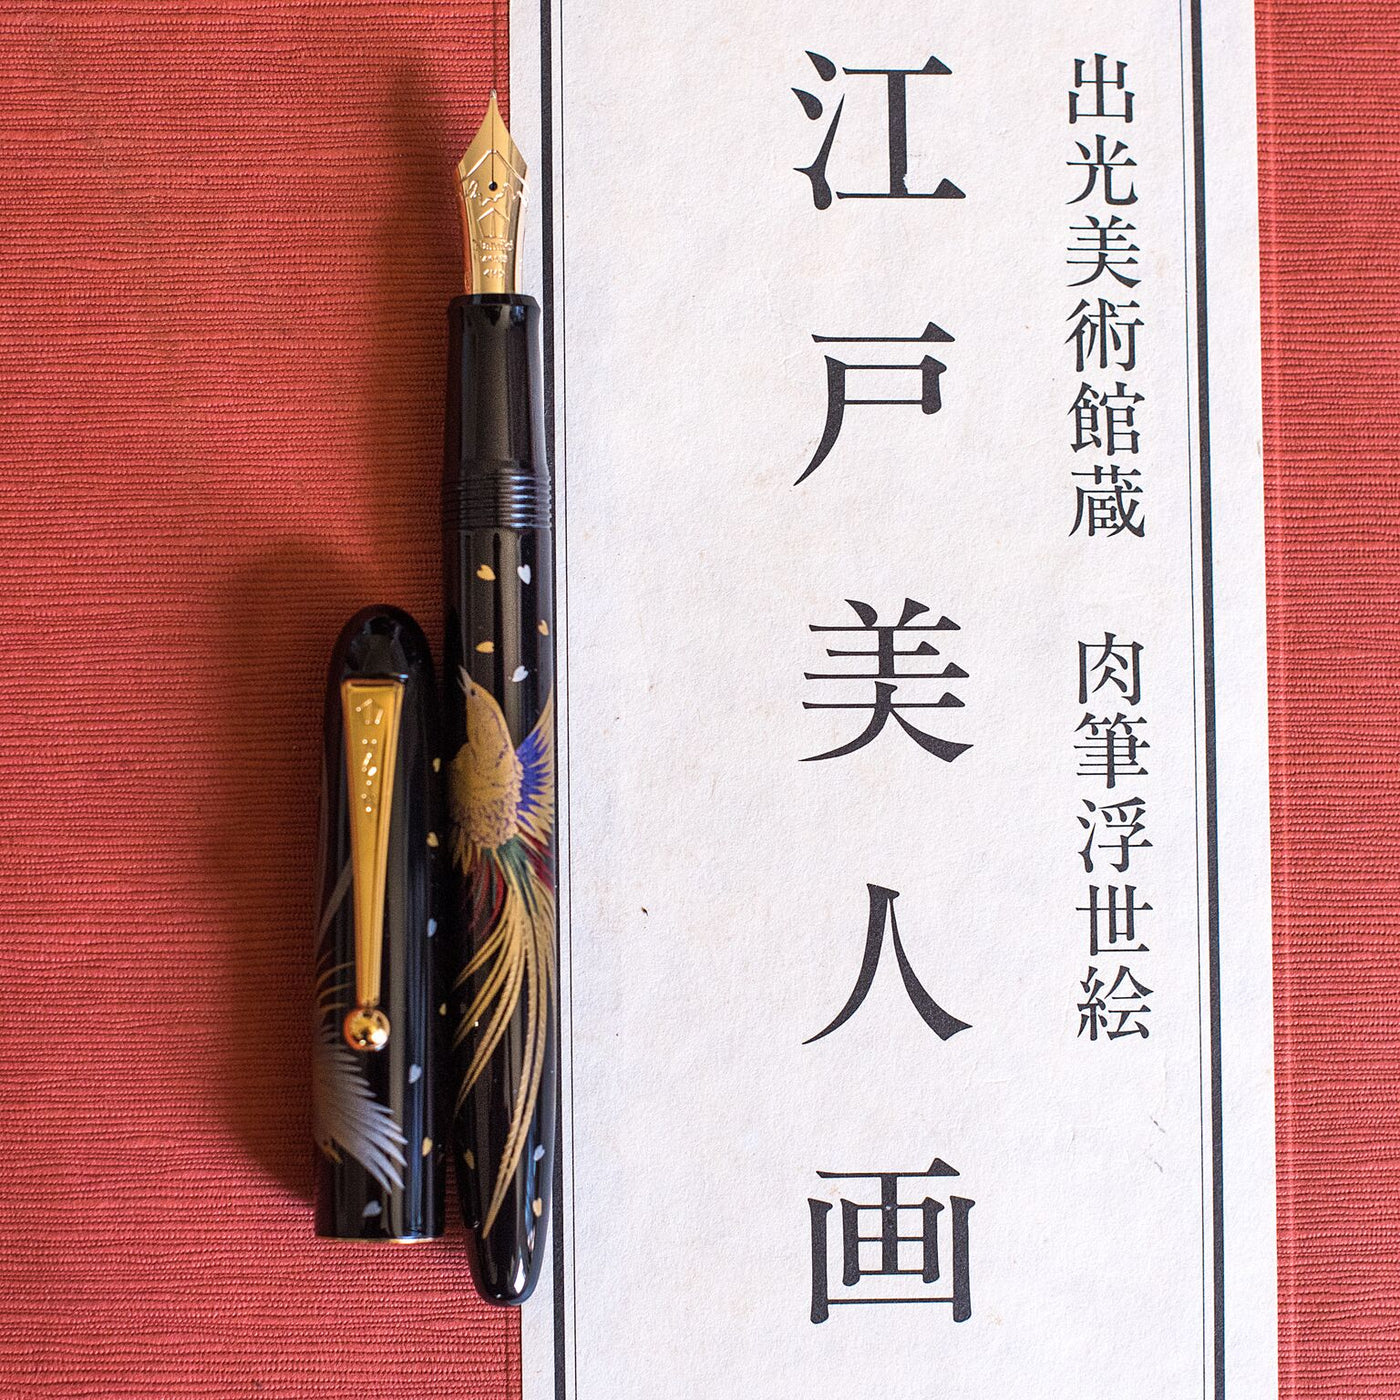 出光美術館蔵 肉筆浮世絵
江戸美人画